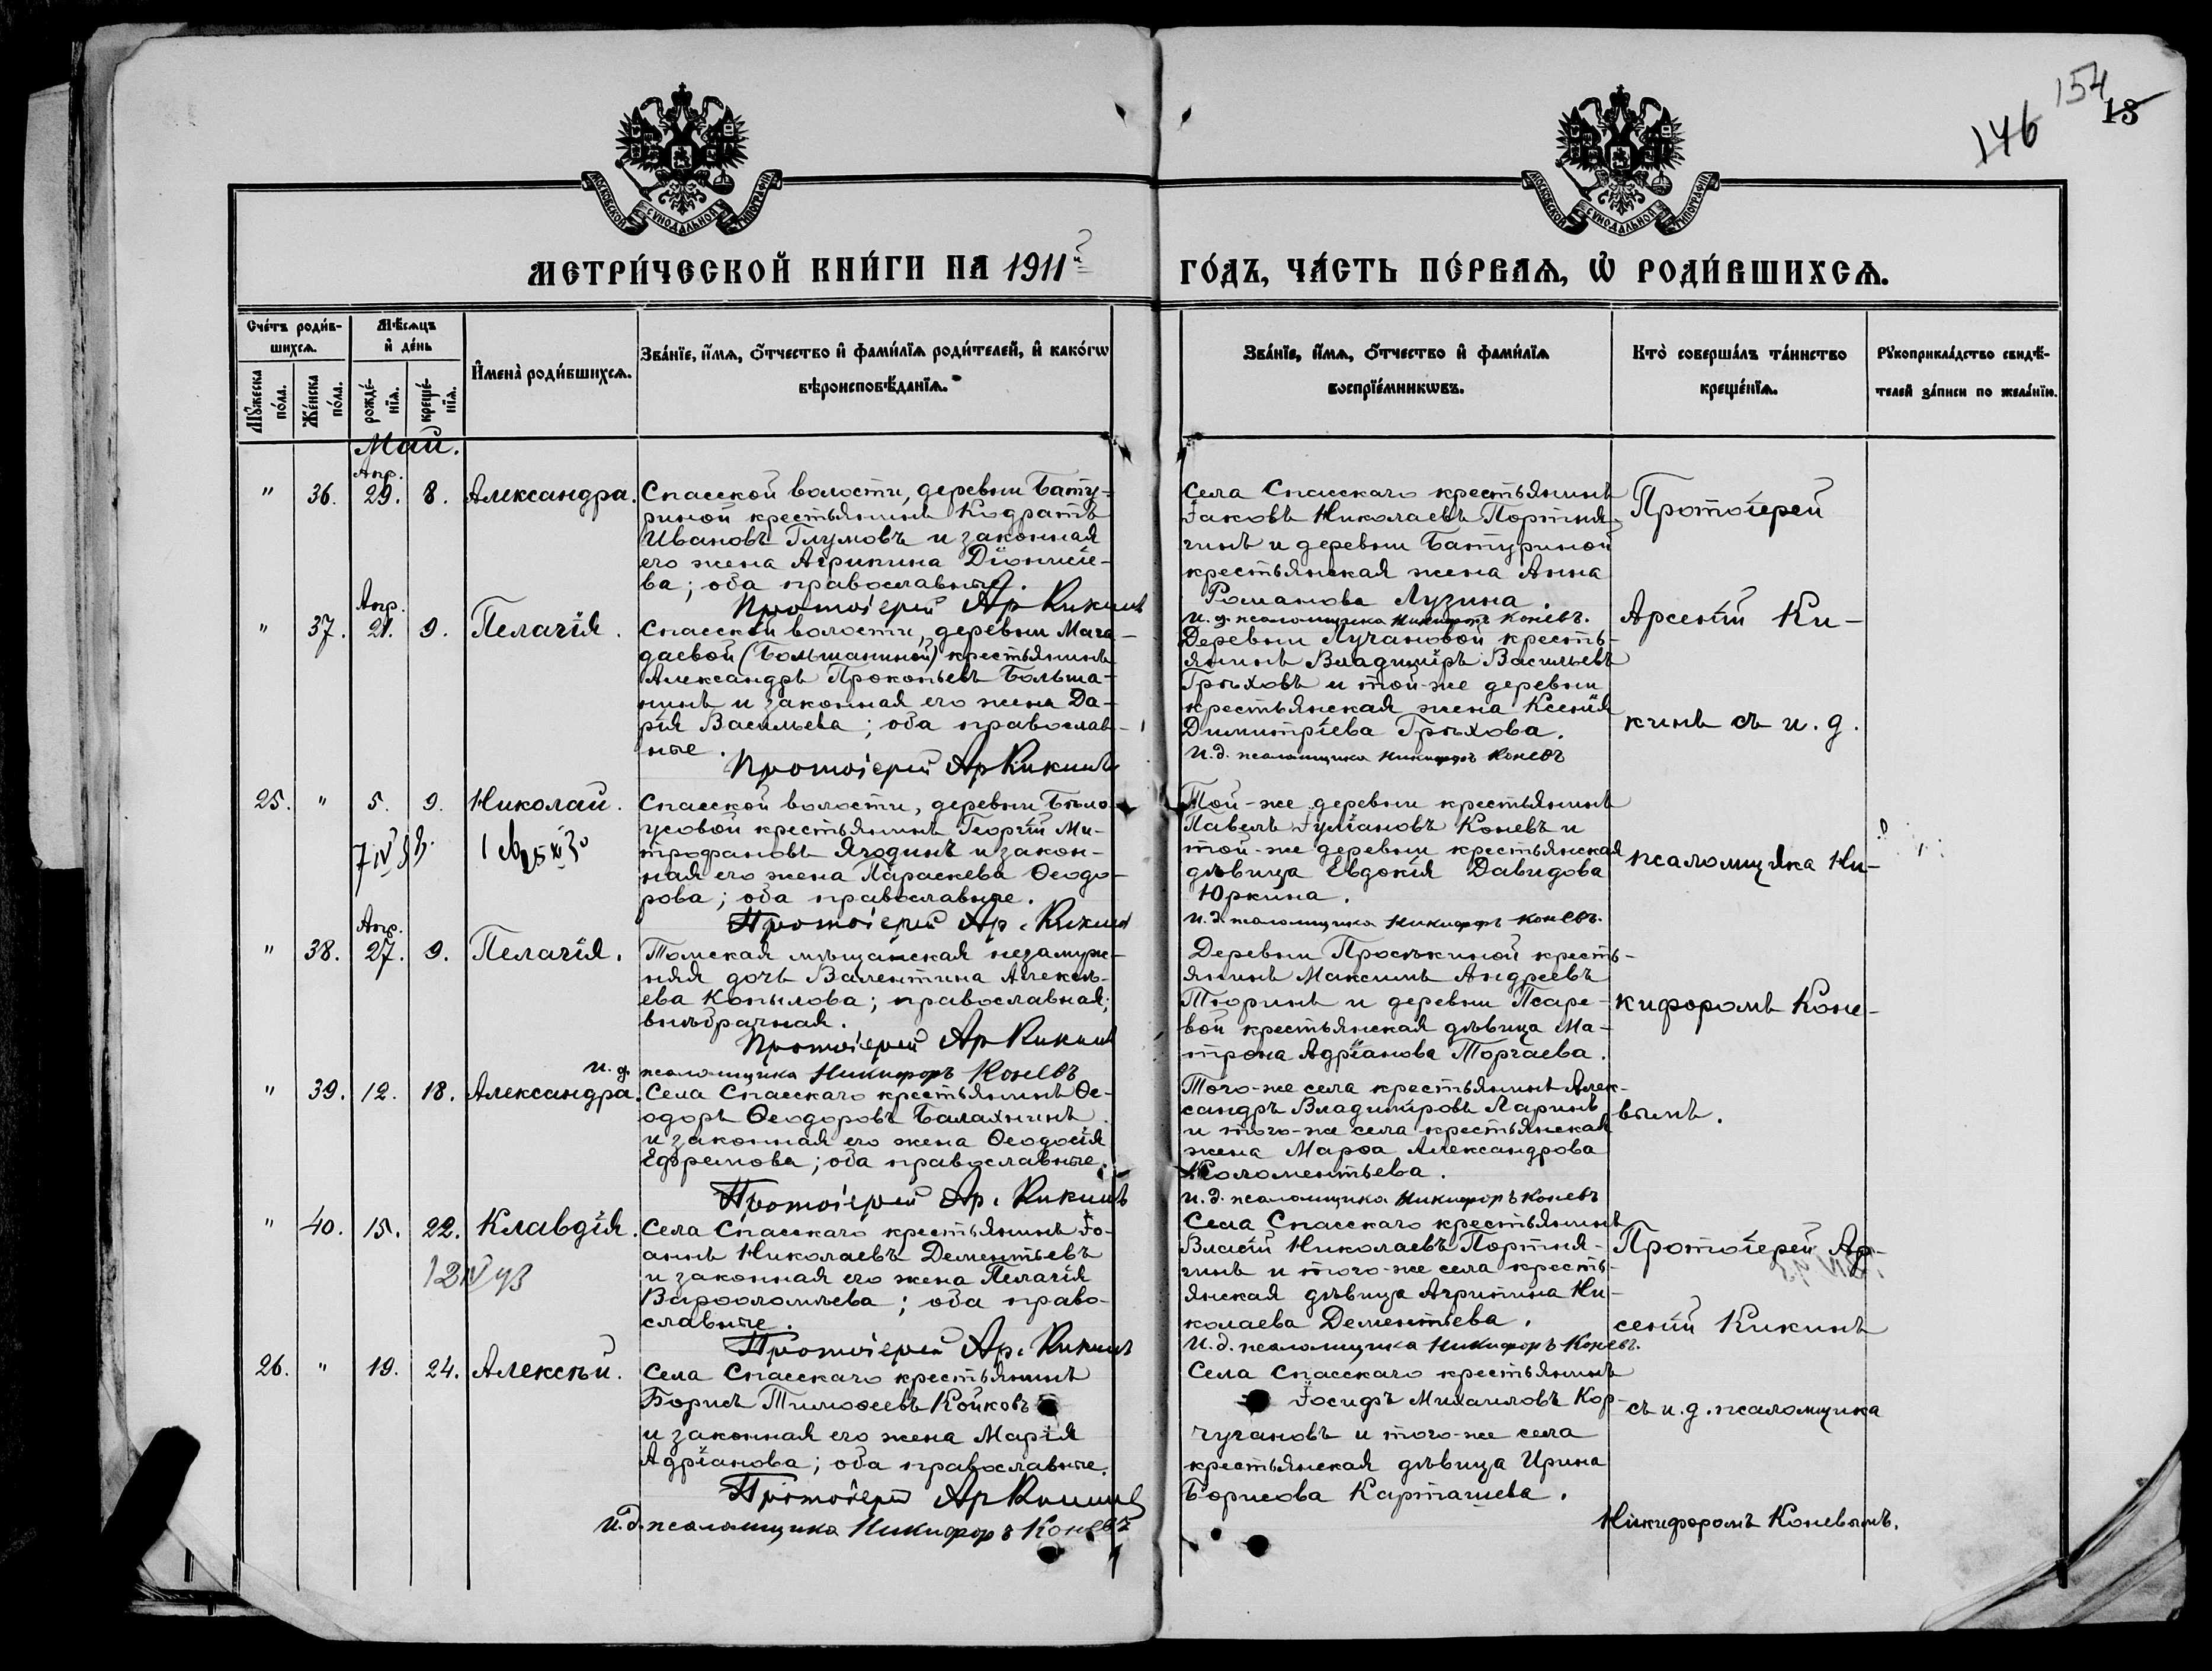 146 154 13
МОСКОВСКОЙ СѴНОДАЛЬНОЙ ТИПОГРАФІИ
МОСКОВСКОЙ СѴНОДАЛЬНОЙ ТИПОГРАФІИ
МЕТРИ́ЧЕСКОЙ КНИ́ГИ НА 1911й ГО́ДЪ, ЧА́СТЬ ПЕ́РВАѦ, Ѡ҆ РОДИ́ВШИХСѦ.
Сче́тъ роди́в-
шихсѧ.
Мѣ́сѧцъ
и҆ де́нь
Мꙋ́жеска
по́ла.
Же́нска
по́ла.
рожде́-
нїѧ.
креще́-
нїѧ.
И҆мена̀ роди́вшихсѧ.
Зва́нїе, и҆́мѧ, о҆́тчество и҆ фами́лїѧ роди́телей, и҆ како́гѡ
вѣроисповѣ́данїѧ.
Зва́нїе, и҆́мѧ, о҆́тчество и҆ фами́лїѧ
воспрїе́мникѡвъ.
Кто̀ соверша́лъ та́инство
креще́нїѧ.
Рꙋкоприкла́дство свидѣ́-
телей за́писи по жела́нїю.
Май.
Апр.
" 36. 29. 8. Александра.
Спасской волости, деревни Бату-
риной крестьянинъ Кодратъ
Ивановъ Глумовъ и законная
его жена Агрипина Діонисіе-
ва; оба православные.
Протоіерей Ар Кикинъ
Села Спасскаго крестьянинъ
Іаковъ Николаевъ Портня-
гинъ и деревни Батуриной
крестьянская жена Анна
Романова Лузина.
И. д. псаломщика Никифоръ Коневъ.
Апр.
" 37. 21. 9. Пелагія.
Спасской волости, деревни Мага-
даевой (Большаниной) крестьянинъ
Александръ Прокопьевъ Больша-
нинъ и законная его жена Да-
рія Васильева; оба православ-
ные.
Протоіерей Ар Кикинъ
Деревни Лучановой кресть-
янинъ Владиміръ Васильевъ
Грѣховъ и той-же деревни
крестьянская жена Ксенія
Димитріева Грѣхова.
И.д. псаломщика Никифоръ Коневъ
25. " 5. 9. Николай.
Спасской волости, деревни Бѣло-
усовой крестьянинъ Георгій Ми-
трофановъ Ягодинъ и закон-
ная его жена Параскева Ѳеодо-
рова; оба православные.
Протоіерей Ар. Кикинъ
Той-же деревни крестьянинъ
Павелъ Іуліановъ Коневъ и
той-же деревни крестьянская
дѣвица Евдокія Давидова
Юркина.
И. д. псаломщика Никифоръ Коневъ.
Апр.
" 38. 27. 9. Пелагія.
Томская мѣщанская незамуж-
няя дочь Валентина Алексѣ-
ева Копылова; православная;
внѣбрачная.
Протоіерей Ар Кикинъ
И. д. псаломщика Никифоръ Коневъ
Деревни Просѣкиной кресть-
янинъ Максимъ Андреевъ
Тюринъ и деревни Псаре-
вой крестьянская дѣвица Ма-
трона Адріанова Торгаева.
" 39. 12. 18. Александра.
Села Спасскаго крестьянинъ Ѳе-
одоръ Ѳеодоровъ Балахнинъ
и законная его жена Ѳеодосія
Ефремова; оба православные.
Протоіерей Ар. Кикинъ
Того-же села крестьянинъ Алек-
сандръ Владиміровъ Ларинъ
и того-же села крестьянская
жена Марѳа Александрова
Коломентьева.
И. д. псаломщика Никифоръ Коневъ
" 40. 15. 22. Клавдія.
12 IV 93
Села Спасскаго крестьянинъ Іо-
аннъ Николаевъ Дементьевъ
и законная его жена Пелагія
Варѳоломѣева; оба право-
славные.
Протоіерей Ар. Кикинъ
Села Спасскаго крестьянинъ
Власій Николаевъ Портня-
гинъ и того-же села кресть-
янская дѣвица Агрипина Ни-
колаева Дементьева.
И. д. псаломщика Никифоръ Коневъ.
26. " 19. 24. Алексѣй.
Села Спасскаго крестьянинъ
Борисъ Тимоѳеевъ Койковъ
и законная его жена Марія
Адріанова; оба православные.
Протоіерей Ар Кикинъ
И.д. псаломщика Никифоръ Коневъ
Села Спасскаго крестьянинъ
Іосифъ Михаиловъ Кор-
чугановъ и того-же села
крестьянская дѣвица Ирина
Борисова Карташева.
Протоіерей
Арсеній Ки-
кинъ съ и. д.
псаломщика Ни-
кифоромъ Коне-
вымъ.
Протоіерей Ар-
сеній Кикинъ
съ и. д. псаломщика
Никифоромъ Коневымъ.